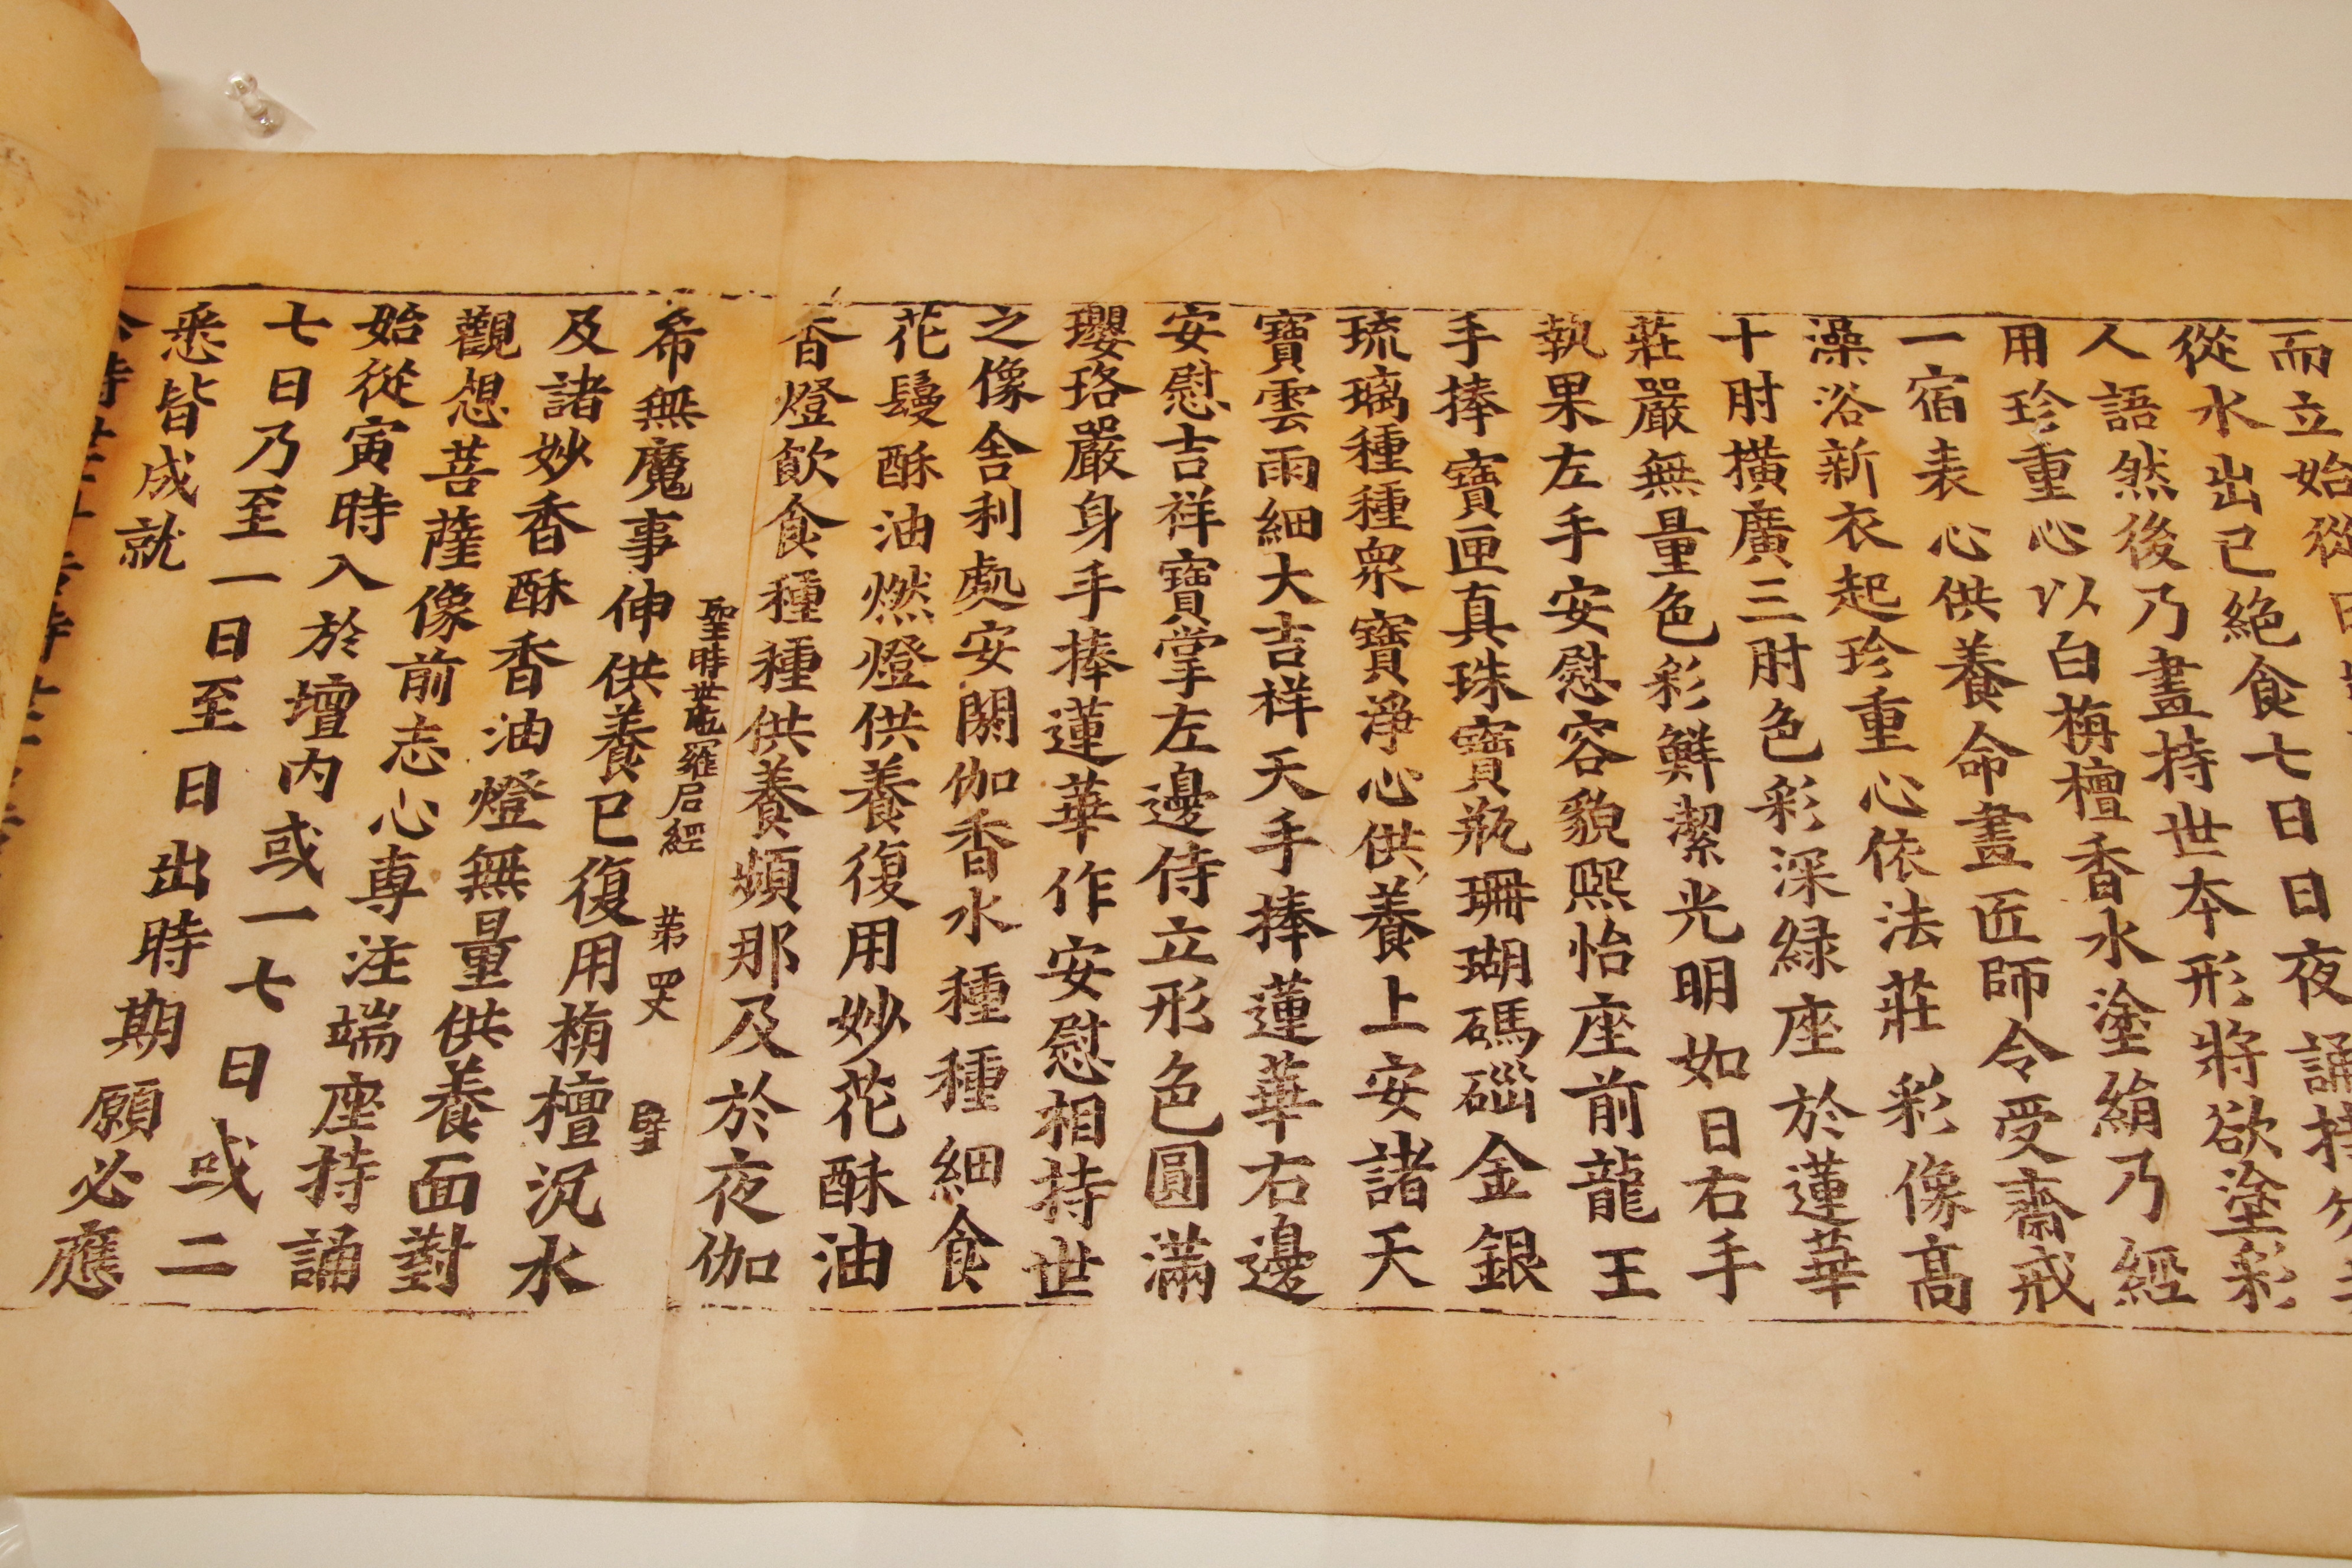 而立始從
從水出已絕食七日日夜誦持
人語然後乃畫持世本形將欲塗彩
用珍重心以白栴檀香水塗絹乃經
一宿表心供養命畫匠師令受齋戒
澡浴新衣起珍重心依法莊彩像高
十肘横廣三肘色彩深緑座於蓮華
莊嚴無量色彩鮮潔光明如日右手
執果左手安慰容貌熈怡座前龍王
手捧寶匣真珠寶瓶珊瑚碼碯金銀
琉璃種種衆寶淨心供養上安諸天
寶雲雨細大吉祥天手捧蓮華右邊
安慰吉祥寶掌左邊侍立形色圓滿
瓔珞嚴身手捧蓮華作安慰相持世
之像舍利處安閼伽香水種種細食
花鬘酥油燃燈供養復用妙花酥油
香燈飲食種種供養頻那及於夜伽
聖持世陁羅尼經 第四丈 壁
希無魔事伸供養已復用栴檀沉水
及諸妙香酥香油燈無量供養面對
觀想菩薩像前志心專注端座持誦
始從寅時入於壇内或一七日或二
七日乃至一日至日出時期願必應
悉皆成就